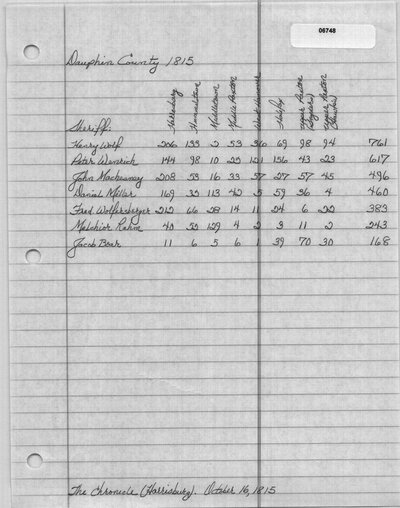 06748
Dauphin County 1815
Sheriff: Harrisburg Hummelstown Middletown Middle Paxton West Hanover Halifax Upper Paxton Upper Paxton
Henry Wolf 206 133 2 53 69 98 94 761
Peter Wenrich 144 98 10 156 43 23 617
John 208 53 16 33 57 27 57 45 496
Daniel Miller 169 32 113 42 5 59 36 4 460
Fred Wolfersberger 212 66 28 14 11 24 6 22 383
Melchior Rahm 40 52 129 4 2 3 11 2 243
Jacob Boas 11 6 5 6 1 39 70 30 168
The Chronicle (Harrisburg). October 16, 1815